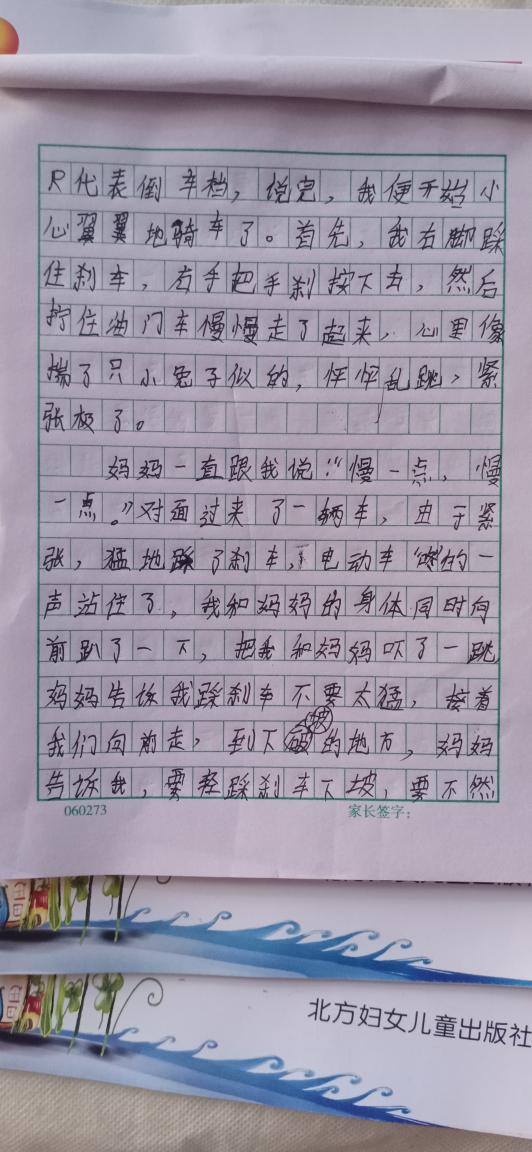 R代表倒车档，说完，我便开始小
心翼翼地骑车了。首先，我右脚踩
住刹车，右手把手刹按下去，然后
拧住油门车慢慢走了起来，心里像
揣了只小兔子似的，怦怦乱跳，紧
张极了。
妈妈一直跟我说：“慢一点，慢
一点。”对面过来了一辆车，由于紧
张，猛地踩了刹车，电动车“咚”的一
声站住了，我和妈妈的身体同时向
前趴了一下，把我和妈妈吓了一跳
妈妈告诉我踩刹车不要太猛，接着
我们向前走，到下坡的地方，妈妈
告诉我，要轻踩刹车下坡，要不然
060273 家长签字：
北方妇女儿童出版社